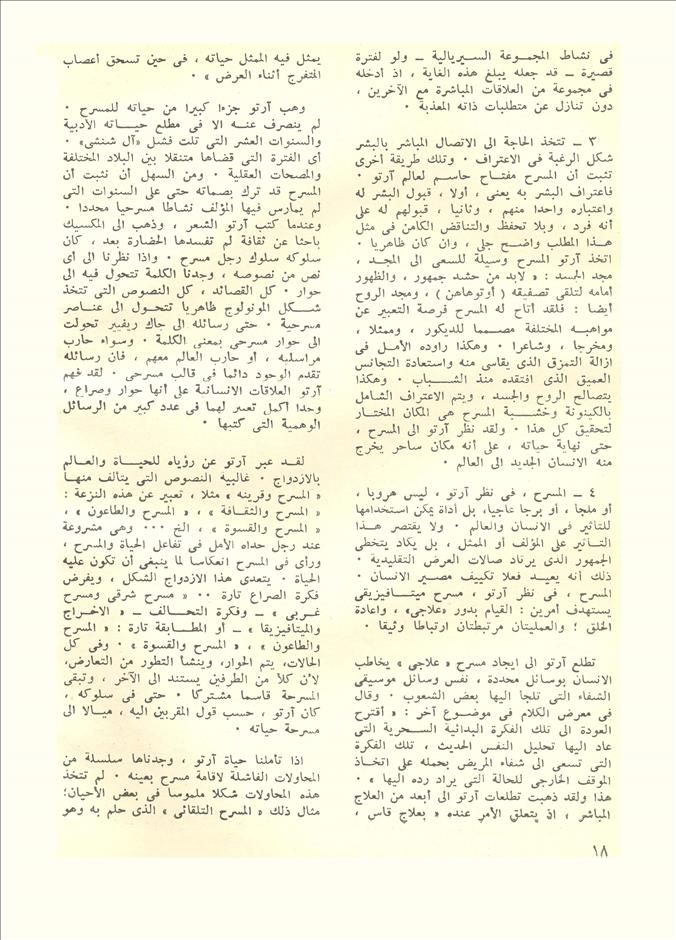 فى نشاط المجموعة السيريالية ــ ولو لفترة
قصيرة ــ قد جعله يبلغ هذه الغاية ، اذ أدخله
فى مجموعة من العلاقات المباشرة مع الآخرين ،
دون تنازل عن متطلبات ذاته المعذبة ٠
٣ ــ تتخذ الحاجة الى الاتصال المباشر بالبشر
شكل الرغبة فى الاعتراف ٠ وتلك طريقة أخرى
تثبت أن المسرح مفتاح حاسم لعالم آرتو ٠
فاعتراف البشر به يعنى ، أولا ، قبول البشر له
واعتباره واحدا منهم ، وثانيا ، قبولهم له على
أنه فرد ، وبلا تحفظ والتناقض الكامن فى مثل
هذا المطلب واضح جلى ، وان كان ظاهريا ٠
اتخذ آرتو المسرح وسيلة للسعى الى المجد ،
مجد الجسد : « لابد من حشد جمهور ، والظهور
أمامه لتلقى تصفيقه ( أوتوهاهن ) ، ومجد الروح
أيضا : فلقد أتاح له المسرح فرصة التعبير عن
مواهبه المختلفة مصمما للديكور ، وممثلا ،
ومخرجا ، وشاعرا ٠ وهكذا راوده الأمل فى
ازالة التمزق الذى يقاسى منه واستعادة التجانس
العميق الذى افتقده منذ الشباب ٠ وهكذا
يتصالح الروح والجسد ، ويتم الاعتراف الشامل
بالكينونة وخشبة المسرح هى المكان المختار
لتحقيق كل هذا ٠ ولقد نظر آرتو الى المسرح ،
حتى نهاية حياته ، على أنه مكان ساحر يخرج
منه الانسان الجديد الى العالم ٠
٤ ــ المسرح ، فى نظر آرتو ، ليس هروبا ،
أو ملجأ ، أو برجا عاجيا، بل أداة يمكن استخدامها
للتأثير فى الانسان والعالم ٠ ولا يقتصر هذا
التأثير على المؤلف أو الممثل ، بل يكاد يتخطى
الجمهور الذى يرتاد صالات العرض التقليدية ٠
ذلك أنه يعيد فعلا تكييف مصير الانسان ٠
المسرح ، فى نظر آرتو ، مسرح ميتافيزيقى
يستهدف أمرين : القيام بدور «علاجى» ، واعادة
الخلق ؛ والعمليتان مرتبطتان ارتباطا وثيقا ٠
تطلع آرتو الى ايجاد مسرح « علاجى » يخاطب
الانسان بوسائل محددة ، نفس وسائل موسيقى
الشفاء التى تلجأ اليها بعض الشعوب ٠ وقال
فى معرض الكلام فى موضوع آخر : « أقترح
العودة الى تلك الفكرة البدائية السحرية التى
عاد اليها تحليل النفس الحديث ، تلك الفكرة
التى تسعى الى شفاء المريض بحمله على اتخاذ
الموقف الخارجى للحالة التى يراد رده اليها » ٠
هذا ولقد ذهبت تطلعات آرتو الى أبعد من العلاج
المباشر ، اذ يتعلق الأمر عنده « بعلاج قاس ،
يمثل فيه الممثل حياته ، فى حين تسحق أعصاب
المتفرج أثناء العرض » ٠
وهب آرتو جزءا كبيرا من حياته للمسرح ٠
لم ينصرف عنه الا فى مطلع حياته الأدبية
والسنوات العشر التى تلت فشل «آل شنشى» ٠
أى الفترة التى قضاها متنقلا بين البلاد المختلفة
والمصحات العقلية ٠ ومن السهل أن نثبت أن
المسرح قد ترك بصماته حتى على السنوات التى
لم يمارس فيها المؤلف نشاطا مسرحيا محددا ٠
وعندما كتب آرتو الشعر ، وذهب الى المكسيك
باحثا عن ثقافة لم تفسدها الحضارة بعد ، كان
سلوكه سلوك رجل مسرح ٠ واذا نظرنا الى أى
نص من نصوصه ، وجدنا الكلمة تتحول فيه الى
حوار ٠ كل القصائد ، كل النصوص التى تتخذ
شكل المونولوج ظاهريا تتحول الى عناصر
مسرحية ٠ حتى رسائله الى جاك ريفيير تحولت
الى حوار مسرحى بمعنى الكلمة ٠ وسواء حارب
مراسليه ، أو حارب العالم معهم ، فان رسائله
تقدم الوجود دائما فى قالب مسرحى ٠ لقد فهم
آرتو العلاقات الانسانية على أنها حوار وصراع ،
وجدا أكمل تعبير لهما فى عدد كبير من الرسائل
الوهمية التى كتبها ٠
لقد عبر آرتو عن رؤياه للحياة والعالم
بالازدواج ٠ غالبية النصوص التى يتألف منها
« المسرح وقرينه » مثلا ، تعبير عن هذه النزعة :
« المسرح والثقافة » ، « المسرح والطاعون » ،
« المسرح والقسوة » ، الخ ٠٠٠ وهى مشروعة
عند رجل حداه الأمل فى تفاعل الحياة والمسرح ،
ورأى فى المسرح انعكاسا لما ينبغى أن تكون عليه
الحياة ٠ يتعدى هذا الازدواج الشكل ، ويفرض
فكرة الصراع تارة ٠٠ « مسرح شرقى ومسرح
غربى » ــ وفكرة التحالف ــ « الاخراج
والميتافيزيقا » ــ أو المطابقة تارة : « المسرح
والطاعون » ، « المسرح والقسوة » ٠ وفى كل
الحالات، يتم الحوار، وينشأ التطور من التعارض،
لأن كلا من الطرفين يستند الى الآخر ، وتبقى
المسرحة قاسما مشتركا ٠ حتى فى سلوكه ،
كان آرتو ، حسب قول المقربين اليه ، ميالا الى
مسرحة حياته ٠
اذا تأملنا حياة آرتو ، وجدناها سلسلة من
المحاولات الفاشلة لاقامة مسرح بعينه ٠ لم تتخذ
هذه المحاولات شكلا ملموسا فى بعض الأحيان؛
مثال ذلك « المسرح التلقائى » الذى حلم به وهو
١٨